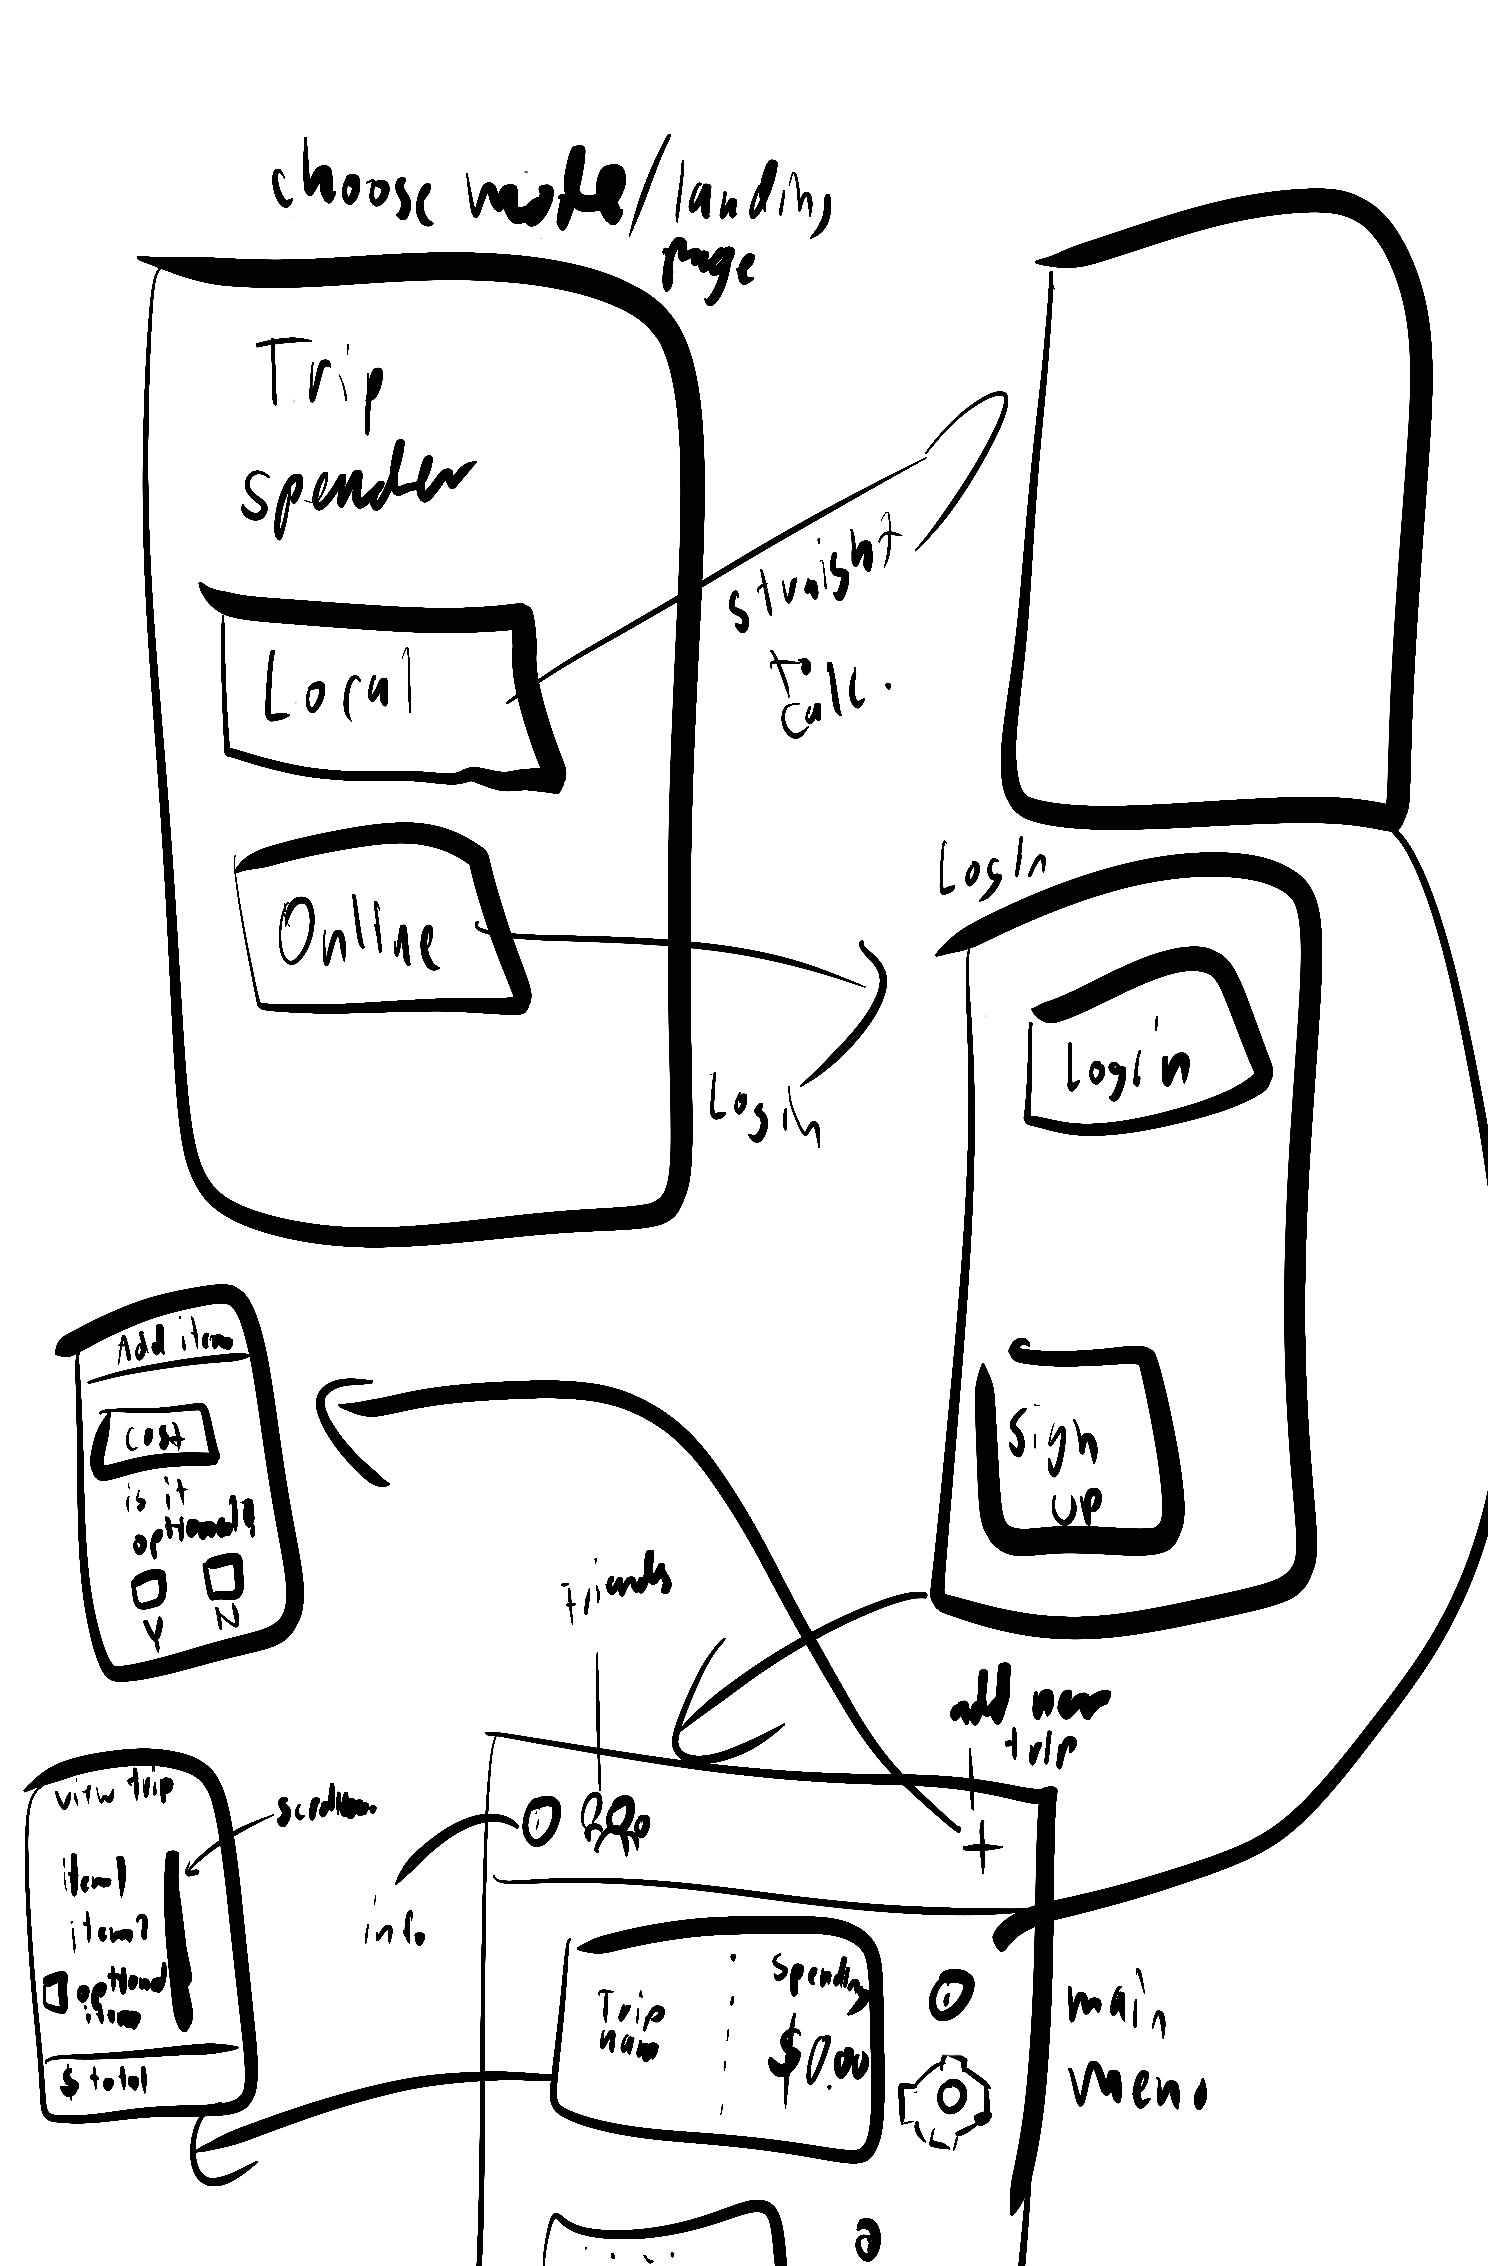 choose mode/landing
page
Trip
spender
Local
straight
to
calc.
Online
Login
Login
Login
Sign
up
Add item
cost
is it
optional?
Y N
friends
add new
trip
view trip
scroll
item1
item2
optional
item
$ total
info
Trip
nam
Spending
$0.00
main
menu